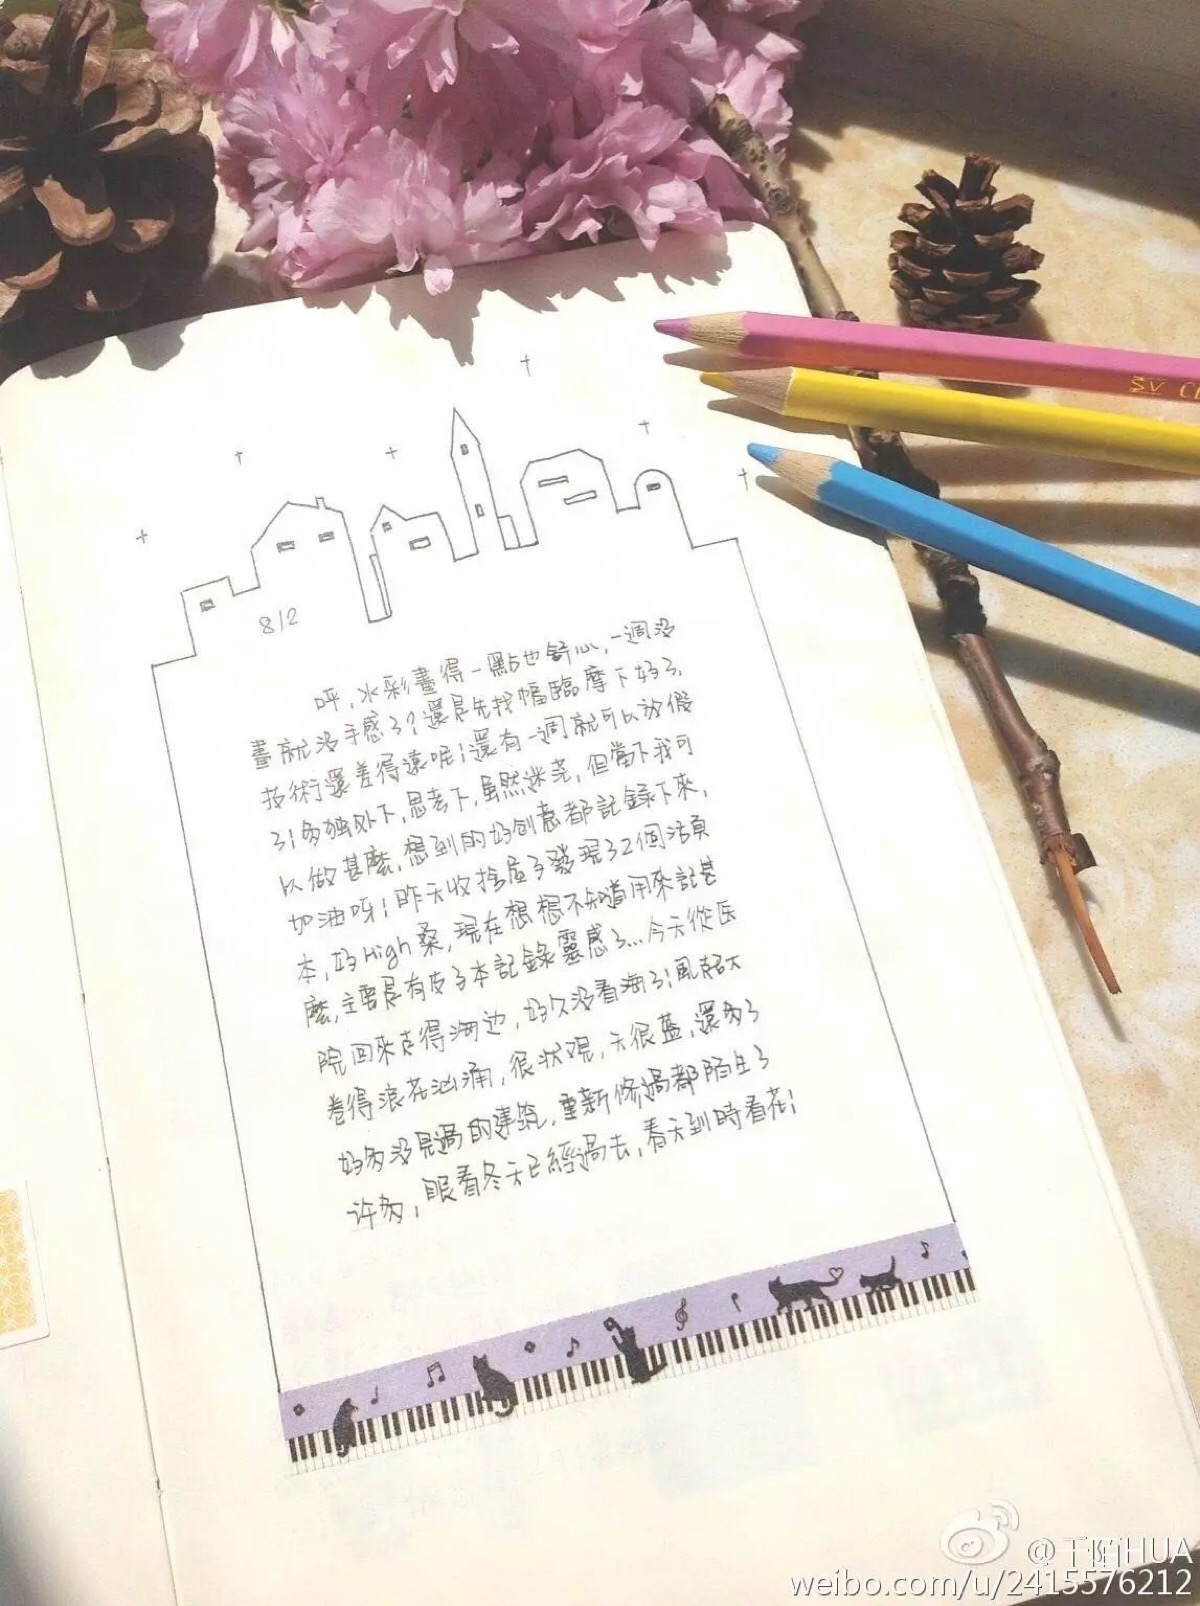 8/2
呼,水彩畫得一點也舒心,一週没
畫就没手感了?還是先找幅臨摩下好了,
技術還差得遠呢!還有一週就可以放假
了!多独处下,思考下,虽然迷茫,但當下我可
以做甚麽,想到的好创意都記録下來,
加油呀!昨天收拾屋子發現了2個活頁
本,好High桑,現在想想不知道用來記甚
麽,主要是有皮子本記録靈感了...今天從医
院回來走得海边,好久没看海了!風超大
卷得浪花汹涌,很状观,天很蓝,還多了
好多没見過的建筑,重新修過都陌生了
许多,眼看冬天已經過去,春天到時看花!
SV
@千陌HUA
weibo.com/u/2415576212